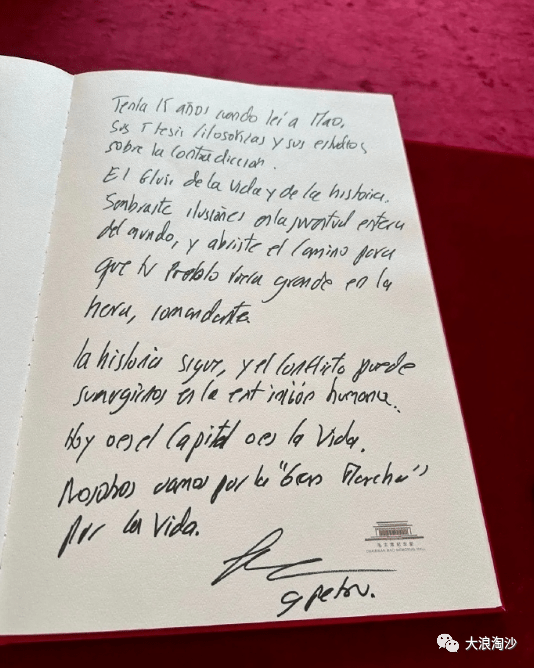 Tenía 15 años cuando leí a Mao,
Sus Tesis filosoficas y sus estudios
sobre la contradiccion.
El fluir de la vida y de la historia.
Sembraste ilusiónes en la juventud entera
del mundo, y abriste el camino para
que tu Pueblo fuera grande en la
hera, comandante.
la historia sigue, y el conflicto puede
sumergirnos en la extinción humana.
Hoy o es el Capital o es la Vida.
Nosotros vamos por la "Gran Marcha"
por la Vida.
G Petro.
毛主席纪念堂
CHAIRMAN MAO MEMORIAL HALL
大浪淘沙